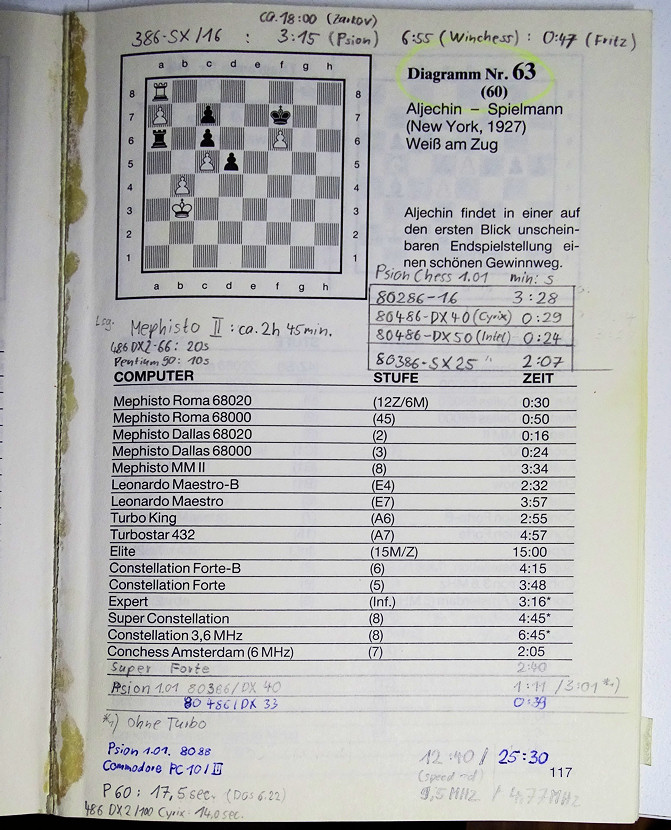 ca. 18:00 (Zarkov)
386-SX/16 : 3:15 (Psion) 6:55 (Winchess) : 0:47 (Fritz)
a b c d e f g h
8 8
7 7
6 6
5 5
4 4
3 3
2 2
1 1
a b c d e f g h
Diagramm Nr. 63
(60)
Aljechin – Spielmann
(New York, 1927)
Weiß am Zug
Aljechin findet in einer auf
den ersten Blick unschein-
baren Endspielstellung ei-
nen schönen Gewinnweg.
Psion Chess 1.01 min:s
80286-16 3:28
80486-DX40 (Cyrix) 0:29
80486-DX50 (Intel) 0:24
80386-SX25 " 2:07
Lsg. Mephisto II : ca. 2h 45min.
486 DX2-66: 20s
Pentium 90: 10s
COMPUTER STUFE ZEIT
Mephisto Roma 68020 (12Z/6M) 0:30
Mephisto Roma 68000 (45) 0:50
Mephisto Dallas 68020 (2) 0:16
Mephisto Dallas 68000 (3) 0:24
Mephisto MM II (8) 3:34
Leonardo Maestro-B (E4) 2:32
Leonardo Maestro (E7) 3:57
Turbo King (A6) 2:55
Turbostar 432 (A7) 4:57
Elite (15M/Z) 15:00
Constellation Forte-B (6) 4:15
Constellation Forte (5) 3:48
Expert (Inf.) 3:16*
Super Constellation (8) 4:45*
Constellation 3,6 MHz (8) 6:45*
Conchess Amsterdam (6 MHz) (7) 2:05
Super Forte 2:40
Psion 1.01 80386/DX 40 1:11 /3:01 *)
80486/DX 33 0:39
*) Ohne Turbo
Psion 1.01. 8088 12:40 / 25:30
Commodore PC 10/III (speed -d)
117
9,5 MHz / 4,77MHz
P60 : 17,5sec. (Dos 6.22)
486 DX2/100 Cyrix: 14,0sec.